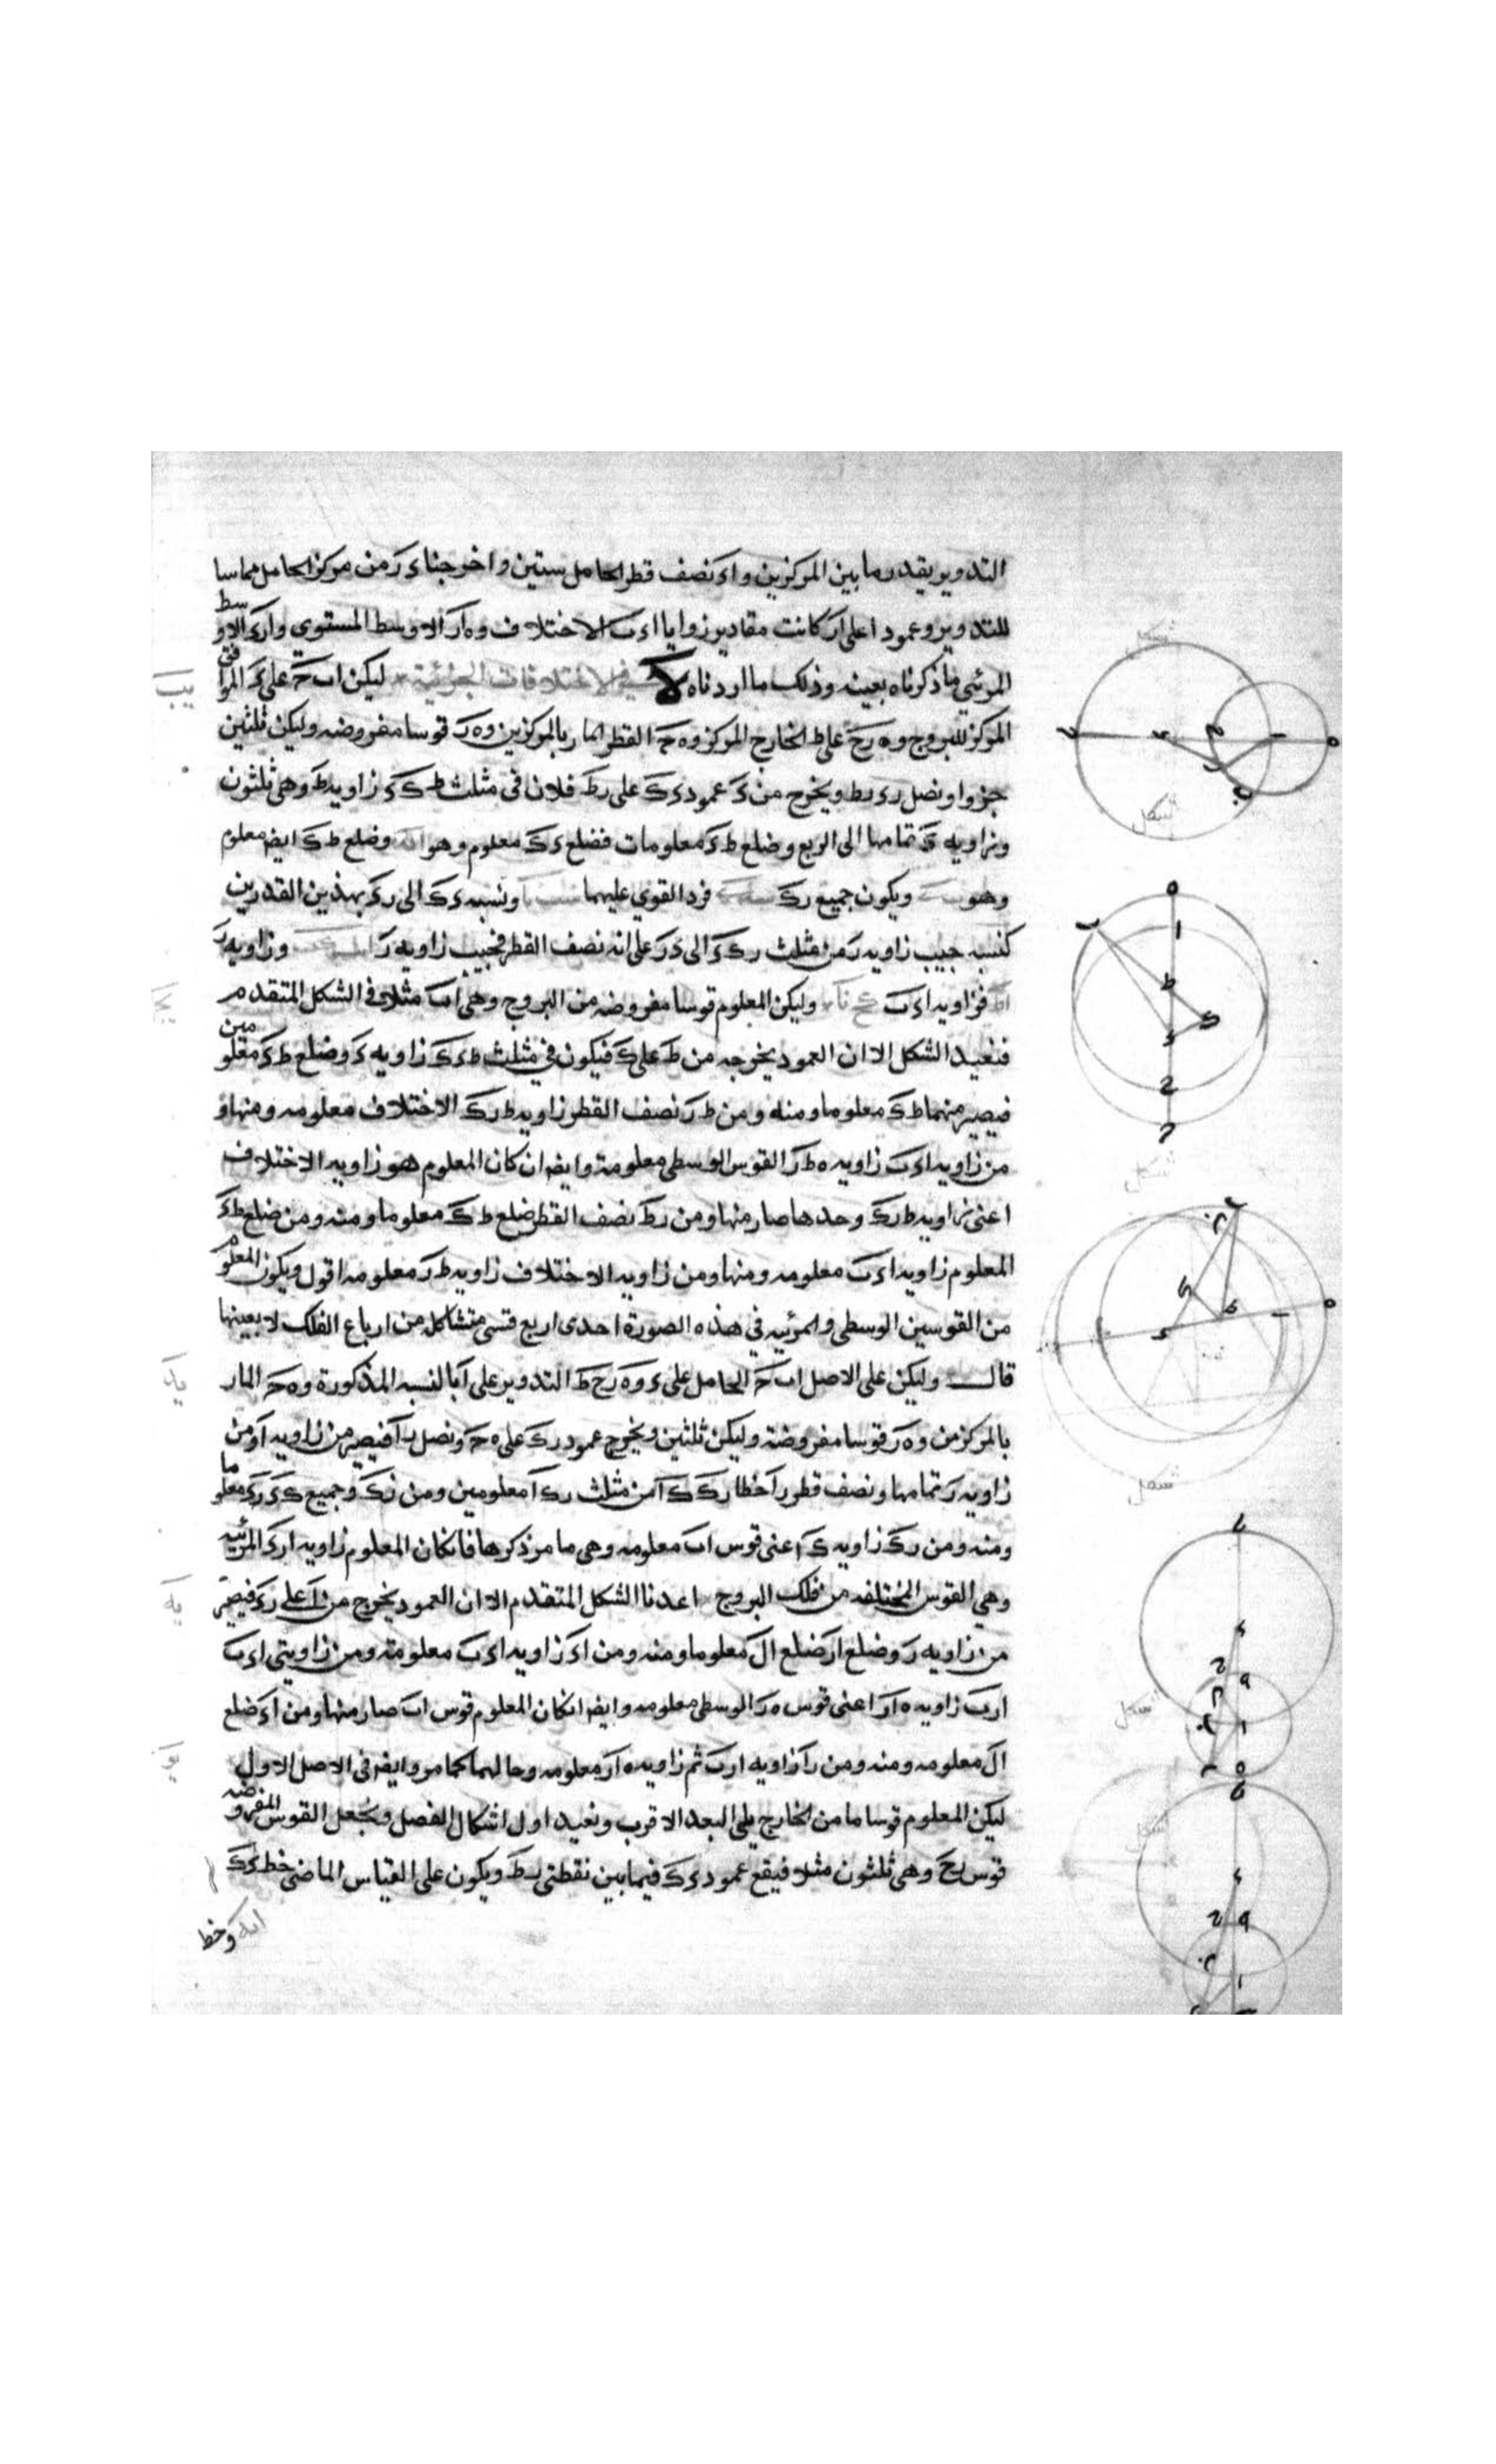 التدوير بقدر ما بين المركزين واء نصف قطر الحامل ستين واخرجنا ءر من مركز الحامل مماسا
للتدوير وعمودا على ار كانت مقادير زوايا اءب الاختلاف وه ار الاوسط المستوي وارء الاوسط
المرئي ما ذكرناه بعينه وذلك ما اردناه في الاختلافات الجزئية ليكن اب ح على ء الموافق
المركز للبروج وه رح على ط الخارج المركز وه ح القطر المار بالمركزين وه ر قوسا مفروضه وليكن ثلثين
جزوا ونصل رء رط ويخرج من ء عمود ءك على رط فلان في مثلث ط ك ء زاويه ط وهي ثلثون
وزاويه ء تمامها الى الربع وضلع ط ء معلومات فضلع ءك معلوم وهو وضلع ط ك ايضا معلوم
وهو ويكون جميع رك فرد القوي عليهما ونسبه ءك الى رء بهذين القدرين
كنسبه جيب زاويه ر من مثلث رك ء الى ءر على انه نصف القطر فجيب زاويه ر وزاويه ر
فزاويه اءب وليكن المعلوم قوسا مفروضه من البروج وهي اب مثلا في الشكل المتقدم
فنعيد الشكل الا ان العمود يخرجه من ط على ك فيكون في مثلث ط ءك زاويه ء وضلع ط ء معلومين
فيصير منهما ط ك معلوما ومنه ومن ط ر نصف القطر زاويه ط رك الاختلاف معلومه ومنها و
من زاويه اءب زاويه ه ط ر القوس الوسطى معلومة وايضا ان كان المعلوم هو زاويه الاختلاف
اعني زاويه ط رك وحدها صار منها ومن رط نصف القطر ضلع ط ك معلوما ومنه ومن ضلع ط ء
المعلوم زاويه اءب معلومه ومنها ومن زاويه الاختلاف زاويه ط ر معلومه اقول ويكون المعلوم
من القوسين الوسطى والمرئيه في هذه الصورة احدى اربع قسي متشاكله من ارباع الفلك لا بعينها
قال وليكن على الاصل اب ح الحامل على ء وه رح ط التدوير على ا بالنسبه المذكورة وه ح المار
بالمركزين وه ر قوسا مفروضة وليكن ثلثين ويخرج عمود رك على ه ح ونصل را فيصير من زاويه ا ومن
زاويه ر تمامها ونصف قطر را خطا رك ك ا من مثلث رك ا معلومين ومن رك وجميع ك ء رء معلوما
ومنه ومن رك زاويه ك اعني قوس اب معلومه وهي ما مر ذكرها فان كان المعلوم زاويه ارء المرئيه
وهي القوس المختلفه من فلك البروج اعدنا الشكل المتقدم الا ان العمود يخرج من ا على رء فيصير
من زاويه ر وضلع ار ضلع ال معلوما ومنه ومن اء زاويه اءب معلومة ومن زاويتي اءب
ارب زاويه ه ار اعني قوس ه ر الوسطى معلومه وايضا ان كان المعلوم قوس اب صار منها ومن اء ضلع
ال معلومه ومنه ومن را زاويه ارب ثم زاويه ه ار معلومه وحالهما كما مر وايضا في الاصل الاول
ليكن المعلوم قوسا ما من الخارج يلي البعد الاقرب ونعيد اول اشكال الفصل ونجعل القوس المفروضه
قوس رح وهي ثلثون مثلا فيقع عمود ءك فيما بين نقطتي رط ويكون على القياس الماضي خط ءك
وخط
شكل
شكل
شكل
شكل
شكل
شكل